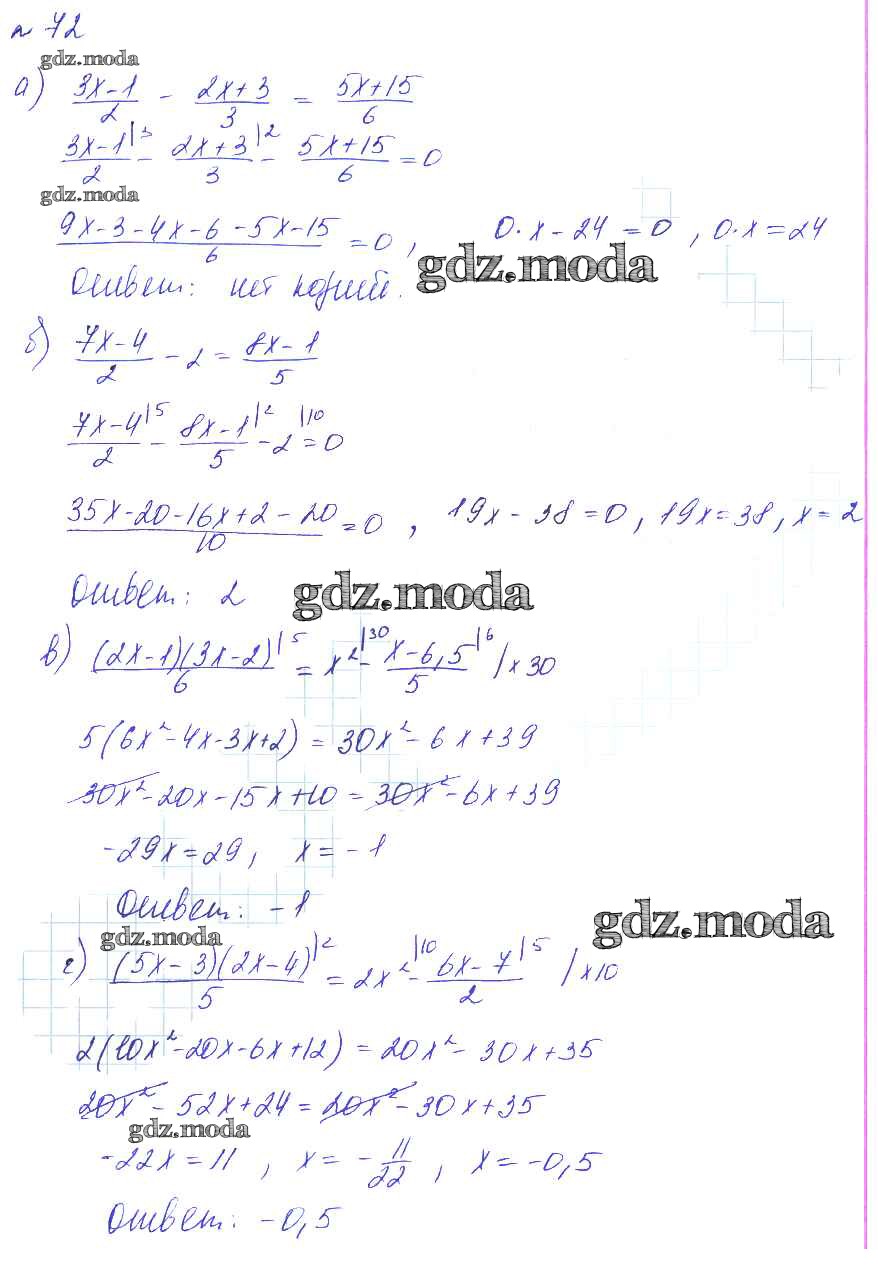 № 72
gdz.moda
а) (3x-1)/2 - (2x+3)/3 = (5x+15)/6
(3x-1)/2 |3 - (2x+3)/3 |2 - (5x+15)/6 = 0
gdz.moda
(9x-3-4x-6-5x-15)/6 = 0, 0·x-24=0, 0·x=24
Ответ: нет корней. gdz.moda
б) (7x-4)/2 - 2 = (8x-1)/5
(7x-4)/2 |5 - (8x-1)/5 |2 - 2 |10 = 0
(35x-20-16x+2-20)/10 = 0, 19x-38=0, 19x=38, x=2
Ответ: 2 gdz.moda
в) (2x-1)(3x-2)/6 |5 = x² |30 - (x-6,5)/5 |6 /×30
5(6x²-4x-3x+2) = 30x²-6x+39
30x²-20x-15x+10 = 30x²-6x+39
-29x=29, x=-1
Ответ: -1
gdz.moda gdz.moda
г) (5x-3)(2x-4)/5 |2 = 2x² |10 - (6x-7)/2 |5 /×10
2(10x²-20x-6x+12) = 20x²-30x+35
20x²-52x+24 = 20x²-30x+35
gdz.moda
-22x=11, x=-11/22, x=-0,5
Ответ: -0,5